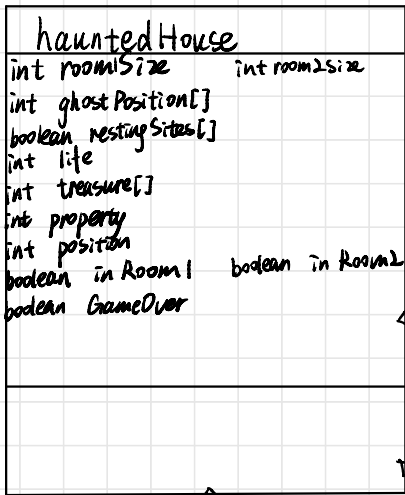 hauntedHouse
int room1Size int room2size
int ghostPosition[]
boolean restingSites[]
int life
int treasure[]
int property
int position
boolean inRoom1 boolean inRoom2
boolean GameOver